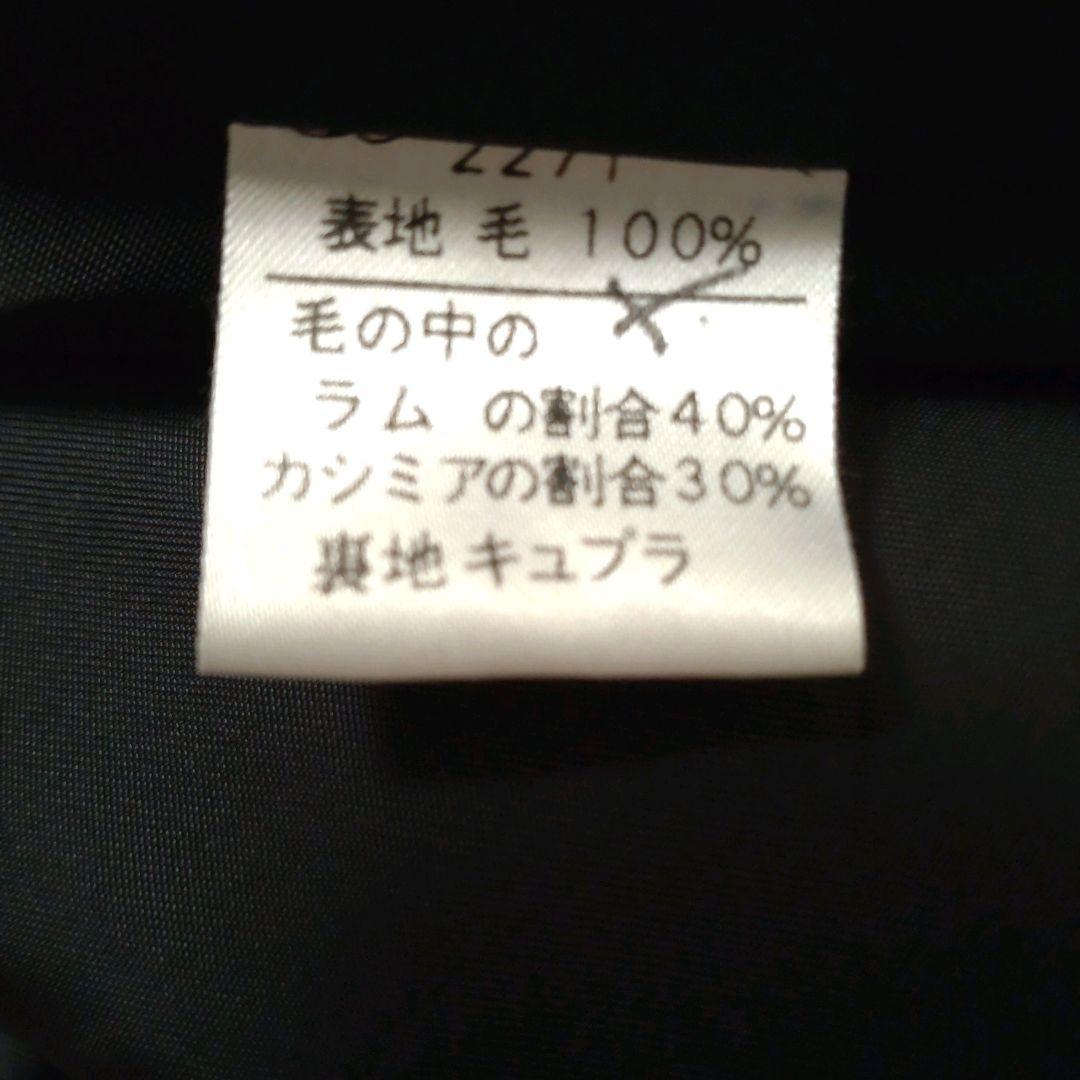 表地 毛 100%
毛の中の
ラム の割合40%
カシミアの割合30%
裏地キュプラ